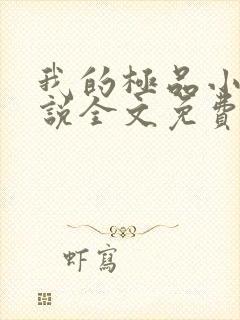 我的極品小
說全文免費
虾寫